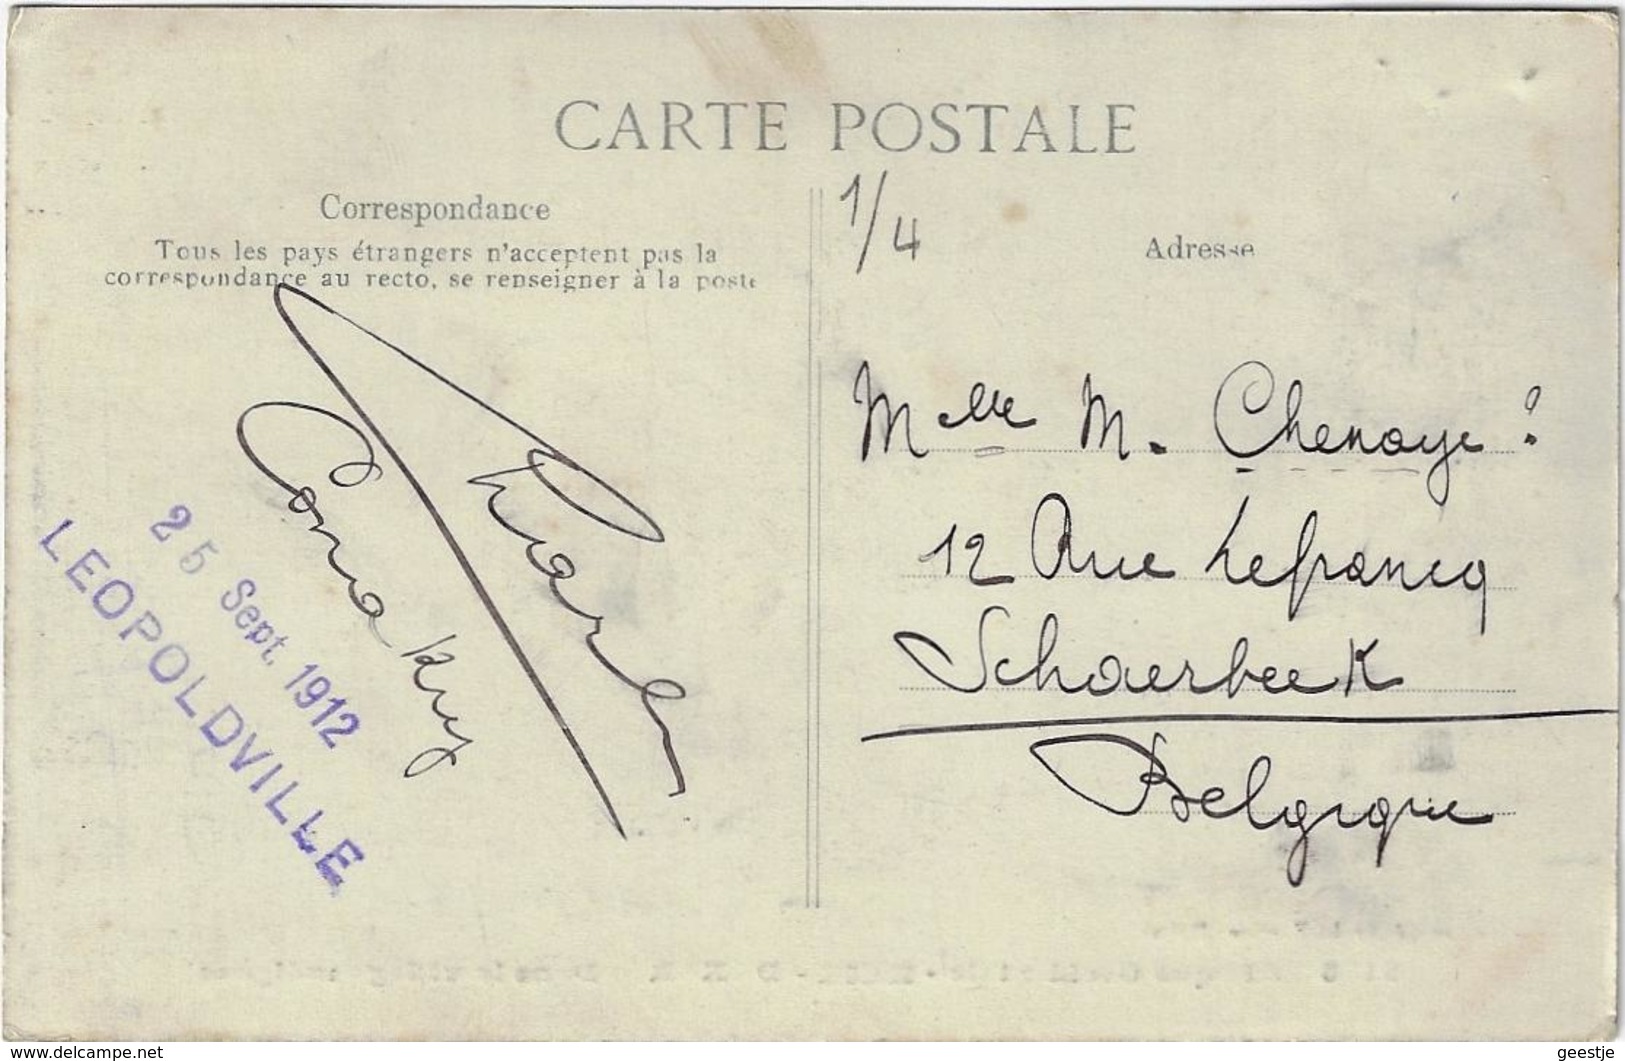 CARTE POSTALE
Correspondance
Tous les pays étrangers n'acceptent pas la
correspondance au recto, se renseigner à la poste
Conakry
25 Sept. 1912
LEOPOLDVILLE
1/4
Adresse
Mlle M. Chenoye
12 Rue Lefrancq
Schaerbeek
Belgique
www.delcampe.net
geestje